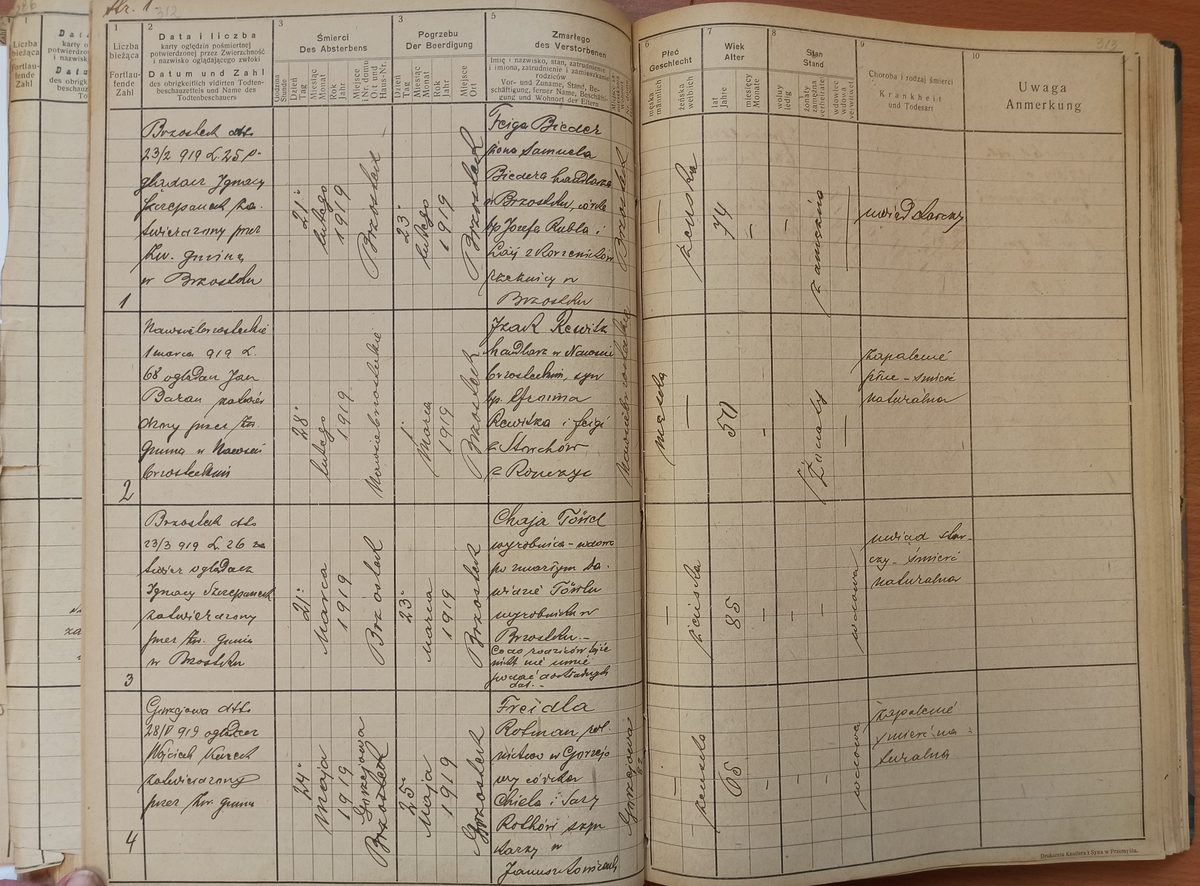 Str. 1.
312
313
1
Liczba
bieżąca
Fortlau-
fende
Zahl
2
Data i liczba
karty oględzin pośmiertnej
potwierdzonej przez Zwierzchność
i nazwisko oglądającego zwłoki
Datum und Zahl
des obrigkeitlich vidirten Todten-
beschauzettels und Name des
Todtenbeschauers
3
Śmierci
Des Absterbens
Godzina
Stunde
Dzień
Tag
Miesiąc
Monat
Rok
Jahr
Miejsce
i Nr. domu
Ort und
Haus-Nr.
3
Pogrzebu
Der Beerdigung
Dzień
Tag
Miesiąc
Monat
Rok
Jahr
Miejsce
Ort
5
Zmarłego
des Verstorbenen
Imię i nazwisko, stan, zatrudnienie
i imiona, zatrudnienie i zamieszkanie
rodziców
Vor- und Zuname, Stand, Be-
schäftigung, ferner Name, Beschäf-
tigung und Wohnort der Eltern
6
Płeć
Geschlecht
męska
männlich
żeńska
weiblich
7
Wiek
Alter
lat
Jahre
miesięcy
Monate
8
Stan
Stand
wolny
ledig
żonaty
zamężna
verheiratet
wdowiec
wdowa
verwitwet
9
Choroba i rodzaj śmierci
Krankheit
und Todesart
10
Uwaga
Anmerkung
1
Brzostek dtto
23/2 919 L. 25 o-
glądacz Ignacy
Szczepanek za-
twierdzony przez
Zw. gminną
w Brzostku
21.
lutego
1919
Brzostek
23.
lutego
1919
Brzostek
Feiga Bieder
żona Samuela
Biedera handlarza
w Brzostku, córka
śp Józefa Rubla i
Brzostku
Brzostek
żeńska
74
zamężna
uwiąd starczy
2
Nawsie brzosteckie
1 marca 919 L.
68 oglądacz Jan
Baran zatwier
dzony przez Zw.
Gminną w Nawsiu
brzosteckim
28.
lutego
1919
Nawsie brzosteckie
1.
Marca
1919
Brzostek
Izak Rewitz
handlarz w Nawsiu
brzosteckim, syn
śp. Efroima
Rewitza i Feigi
z Storchów
z Ropczyc
Nawsie brzosteckie
męska
50
Żonaty
zapalenie
płuc - śmierć
naturalna
3
Brzostek dtto
23/3 919 L. 26 za
twier oglądacz
Ignacy Szczepanek
zatwierdzony
przez Zw. Gminną
w Brzostku
21.
Marca
1919
Brzostek
23.
Marca
1919
Brzostek
Chaja
wyrobnica - wdowa
po zmarłym Da
widzie
wyrobniku w
Brzostku -
Co do rodziców tejże
nikt nie umie
podać dokładnych
dat. -
żeńska
85
wdowa
uwiąd star-
czy - śmierć
naturalna
4
Gorzejowa dtto
28/V 919 oglądacz
Wojciech Kurek
zatwierdzony
przez Zw. gminną
24.
Maja
1919
Gorzejowa
Brzostek
25.
Maja
1919
Brzostek
Freidla
Rotman rol
nictwo w Gorzejo
wej córka
Chiela i Sary
Gorzejowa
żeńska
65
wdowa
zapalenie
śmierć na
turalna
Drukarnia Knollera i Syna w Przemyślu.